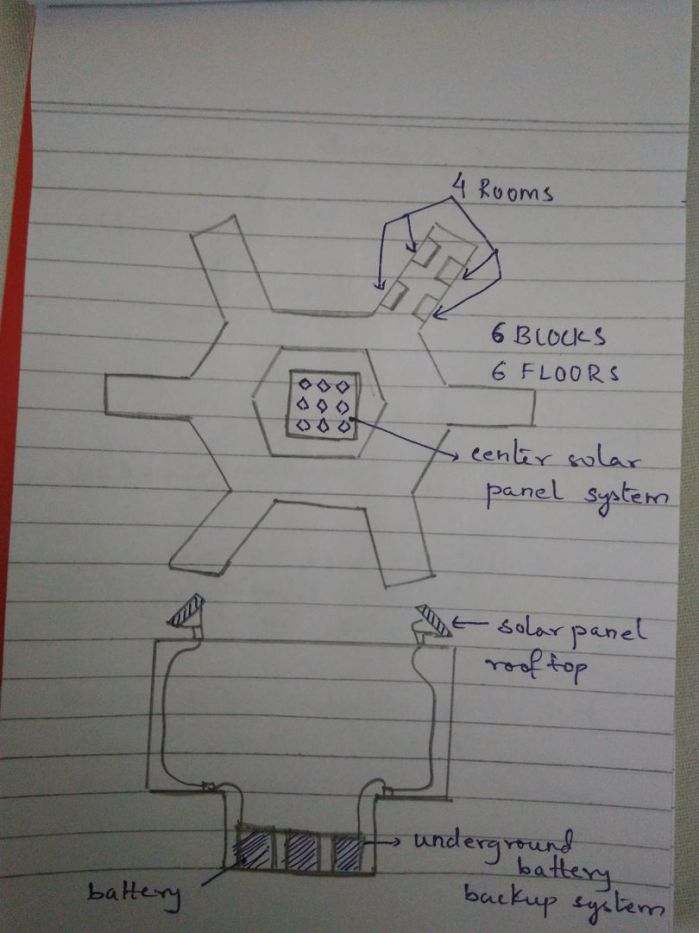 4 Rooms
6 BLOCKS
6 FLOORS
center solar
panel system
solar panel
roof top
underground
battery
backup system
battery